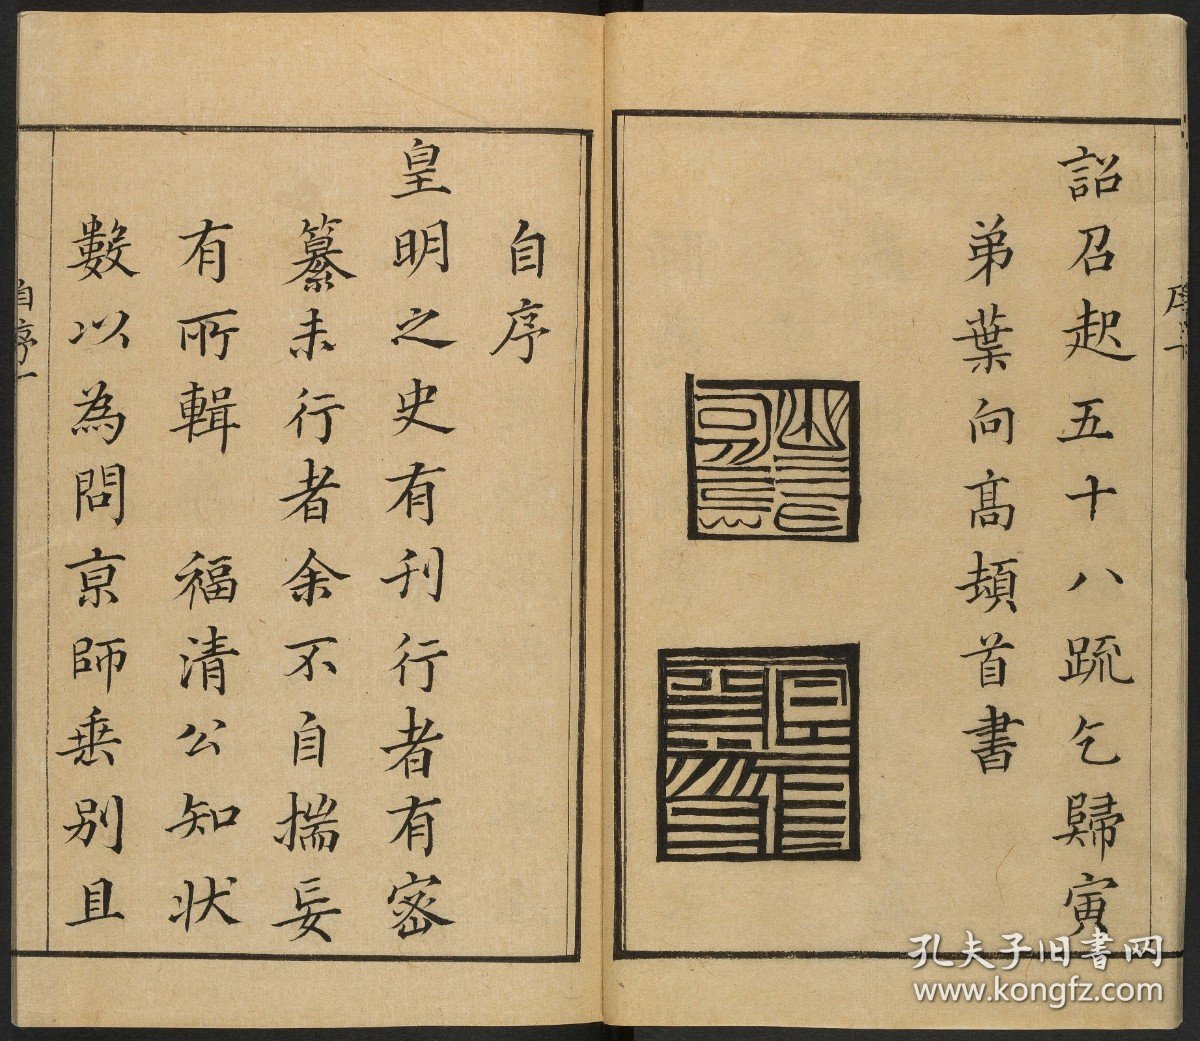 詔召起五十八疏乞歸寅
弟葉向髙頓首書
自序
皇明之史有刊行者有密
纂未行者余不自揣妄
有所輯 福清公知狀
數以為問京師乗別且
自序一
孔夫子旧书网
www.kongfz.com